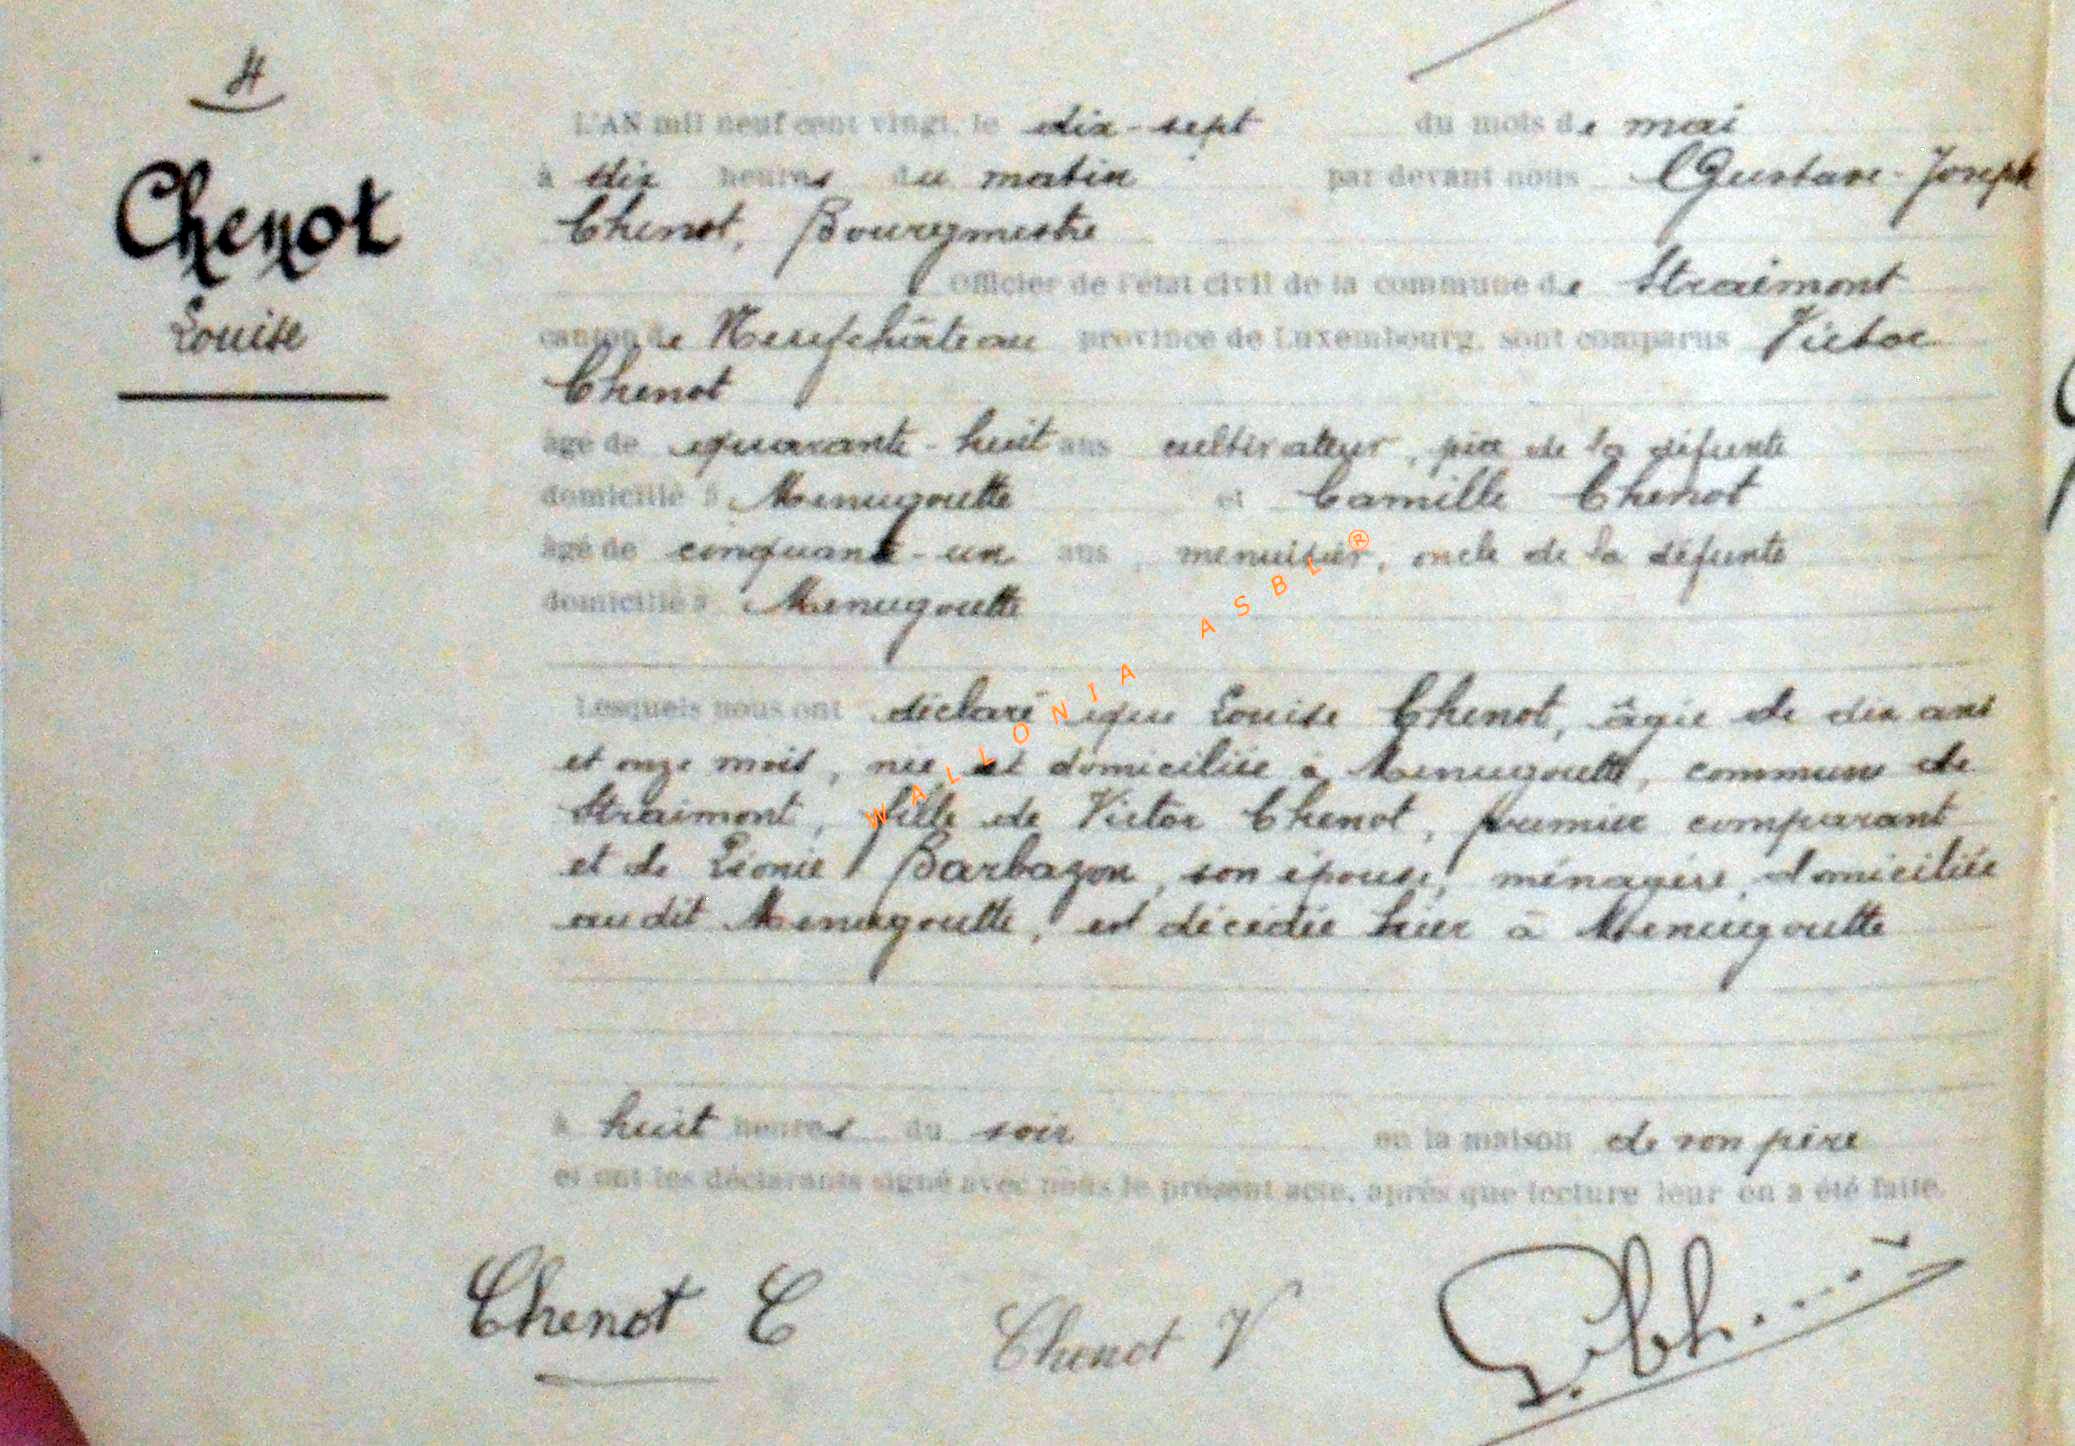 4
Chenot
Louise
L'AN mil neuf cent vingt, le dix-sept du mois de mai
à dix heures du matin par devant nous Gustave-Joseph
Chenot, Bourgmestre
Officier de l'état civil de la commune de Straimont
canton de Neufchâteau province de Luxembourg, sont comparus Victor
Chenot
âgé de quarante-huit ans cultivateur, père de la défunte
domicilié à Menugoutte et Camille Chenot
âgé de cinquante-un ans, menuisier, oncle de la défunte
domicilié à Menugoutte
Lesquels nous ont déclaré que Louise Chenot, âgée de dix ans
et onze mois, née et domiciliée à Menugoutte, commune de
Straimont, fille de Victor Chenot, premier comparant
et de Léonie Barbazon, son épouse, ménagère, domiciliée
au dit Menugoutte, est décédée hier à Menugoutte
à huit heures du soir en la maison de son père
et ont les déclarants signé avec nous le présent acte, après que lecture leur en a été faite.
Chenot C Chenot V
WALLONIA ASBL ®